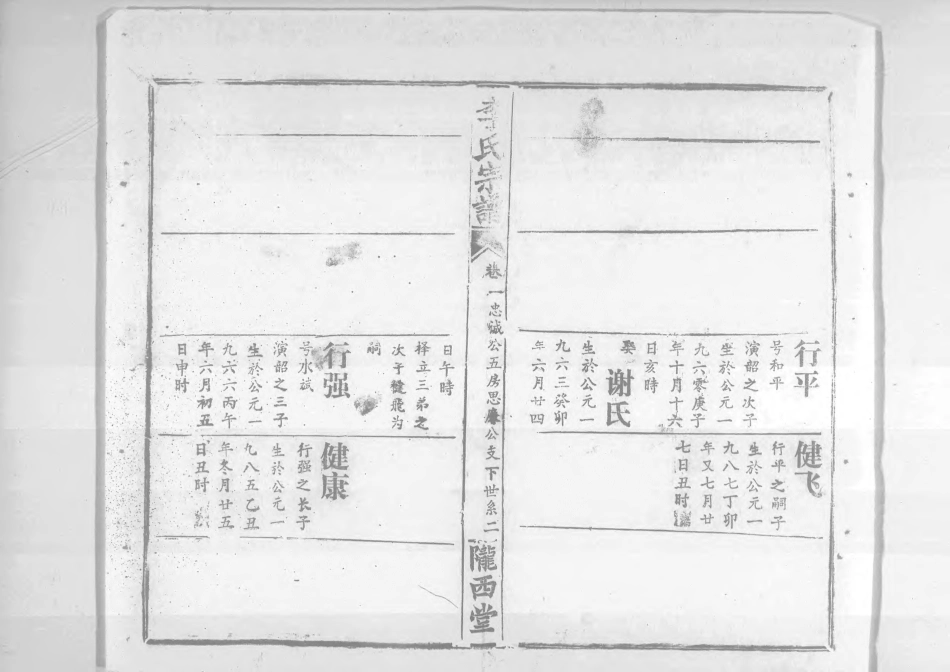 行平
号和平
演韶之次子
生於公元一
九六零庚子
年十月十六
日亥時
娶
谢氏
生於公元一
九六三癸卯
年六月廿四
健飞
行平之嗣子
生於公元一
九八七丁卯
年又七月廿
七日丑时
李氏宗譜
卷一忠誠公五房思公支下世系二
隴西堂
日午時
择立三弟之
次子健飛为
嗣
行强
号水斌
演韶之三子
生於公元一
九六六丙午
年六月初五
日申时
健康
行强之长子
生於公元一
九八五乙丑
年冬月廿五
日丑时